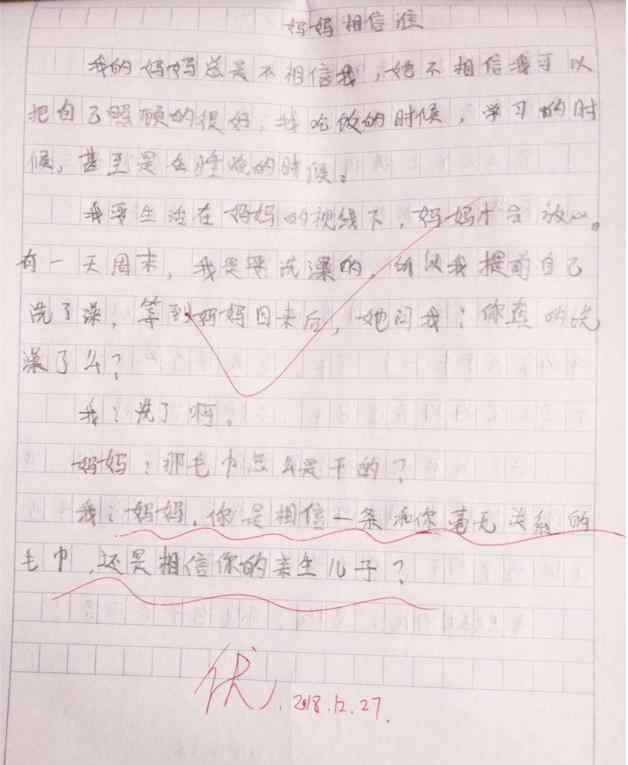 妈妈相信谁
我的妈妈总是不相信我，她不相信我可以
把自己照顾的很好，我吃饭的时候，学习的时
候，甚至是去睡觉的时候。
我要生活在妈妈的视线下，妈妈才会放心。
有一天周末，我是要洗澡的，所以我提前自己
洗了澡，等到妈妈回来后，她问我：你真的洗
澡了么？
我：洗了啊。
妈妈：那毛巾怎么是干的？
我：妈妈，你是相信一条和你毫无关系的
毛巾，还是相信你的亲生儿子？
优
2018.12.27.